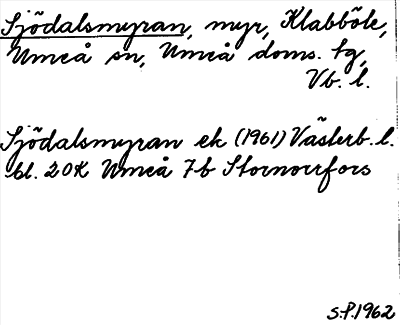 Sjödalsmyran, myr, Klabböle,
Umeå sn, Umeå doms. tg,
Vb. l.
Sjödalsmyran ek (1961) Västerb. l.
bl. 20K Umeå 7b Stornorrfors
S.P. 1962